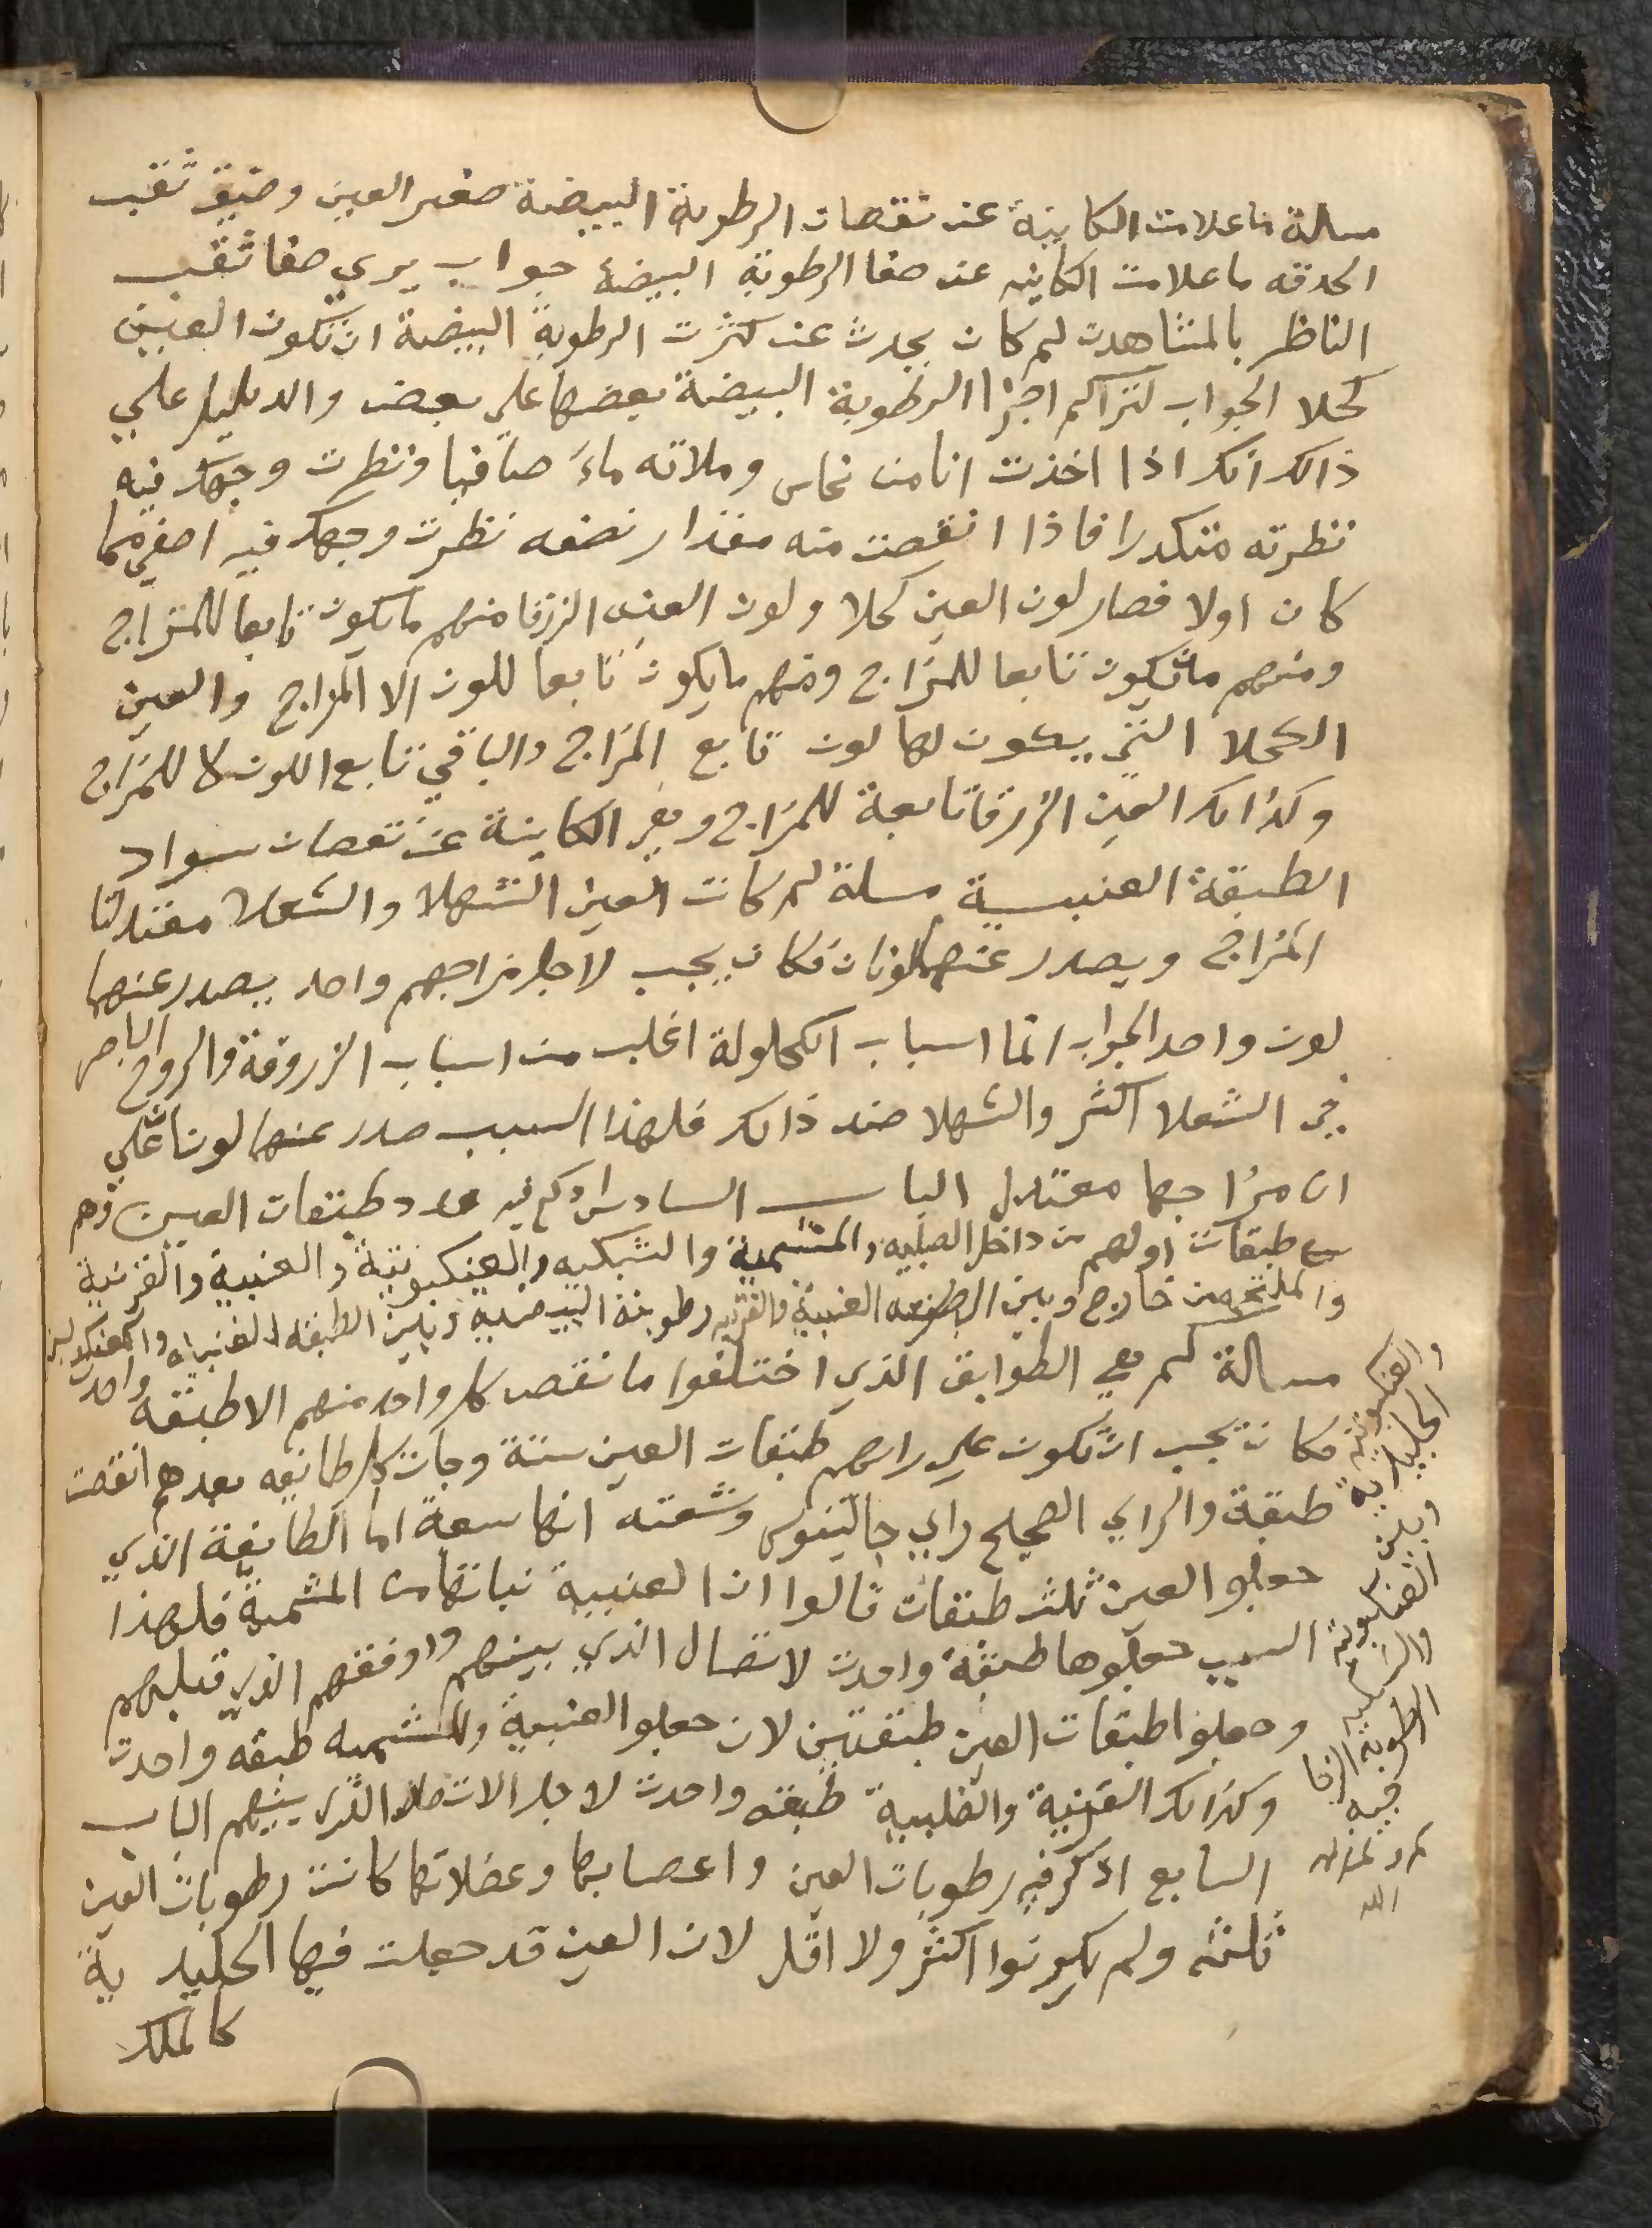 مسالة ما علامت الكاينة عند نقصان الرطوبة البيضة صغر العين وضيق ثقب
الحدقه ما علامت الكاينه عند صفا الرطوبة البيضة جواب يري صفا ثقب
الناظر بالمشاهدت لم كان يحدث عند كثرت الرطوبة البيضة ان تكون العين
كحلا الجواب لتراكم اجزا الرطوبة البيضة بعضها علي بعض والدليل علي
ذالك انك اذا اخذت انا من نحاس وملاته ماء صافيا ونظرت وجهك فيه
نظرته متكدرا فاذا انقصت منه مقدار نصفه نظرت وجهك فيه اصفي مما
كان اولا فصار لون العين كحلا ولون العين الزرقا منهم ما يكون تابعا للمزاج
ومنهم ما يكون تابعا للمزاج ومنهم ما يكون تابعا للون الا المزاج والعين
الكحلا التي يكون لها لون تابع المزاج والباقي تابع اللون لا للمزاج
وكذالك العين الزرقا تابعة للمزاج وهي الكاينة عند نقصان سواد
الطبقة العنبية مسلة لم كانت العين الشهلا والشعلا معتدلتا
المزاج ويصدر عنهما لونان فكان يجب لاجل مزاجهم واحد يصدر عنهما
لون واحد الجواب انما اسباب الكحلولة اغلب من اسباب الزروقة والروح الباصر
في الشعلا اكثر والشهلا ضد ذالك فلهذا السبب صدر عنهما لونا علي
ان مزاجها معتدل الباب السادس اذكر فيه عدد طبقات العين وهم
سبع طبقات اولهم من داخل الصلبيه والمشمية والشبكيه والعنكبوتية والعنبية والقرنية
والملتحمه من خارج وبين العنبية والقرنيه رطوبة البيضية وبين الطبقه
مسالة كم هي الطوايق الذي اختلفوا ما نقص كل واحد منهم الا طبقه واحدت
فكان يجب ان تكون علي رايهم طبقات العين ستة وجات كل طايفه بعدهم انقصت
طبقة والراي الصحيح راي جالينوس وشعته انها سبعة اما الطايفة الذي
جعلو العين ثلث طبقات قالوا ان العنبية نباتها من المشمية فلهذا
السبب جعلوها طبقة واحدت لاتصال الذي بينهم واوفقهم الذي قبلهم
وجعلوا طبقات العين طبقتين لان جعلو العنبية والمشميه طبقه واحدت
وكذالك القرنية والصلبية طبقه واحدت لاجل الاتصال الذي بينهم الباب
السابع اذكر فيه رطوبات العين واعصابها وعضلاتها كانت رطوبات العين
ثلثه ولم يكونوا اكثر ولا اقل لان العين قد جعلت فيها الجليدية
كالملك
والعنكبوتية
الجليدية
وبين
العنكبوتية
والشبكيه
الرطوبة الزجا
جيه